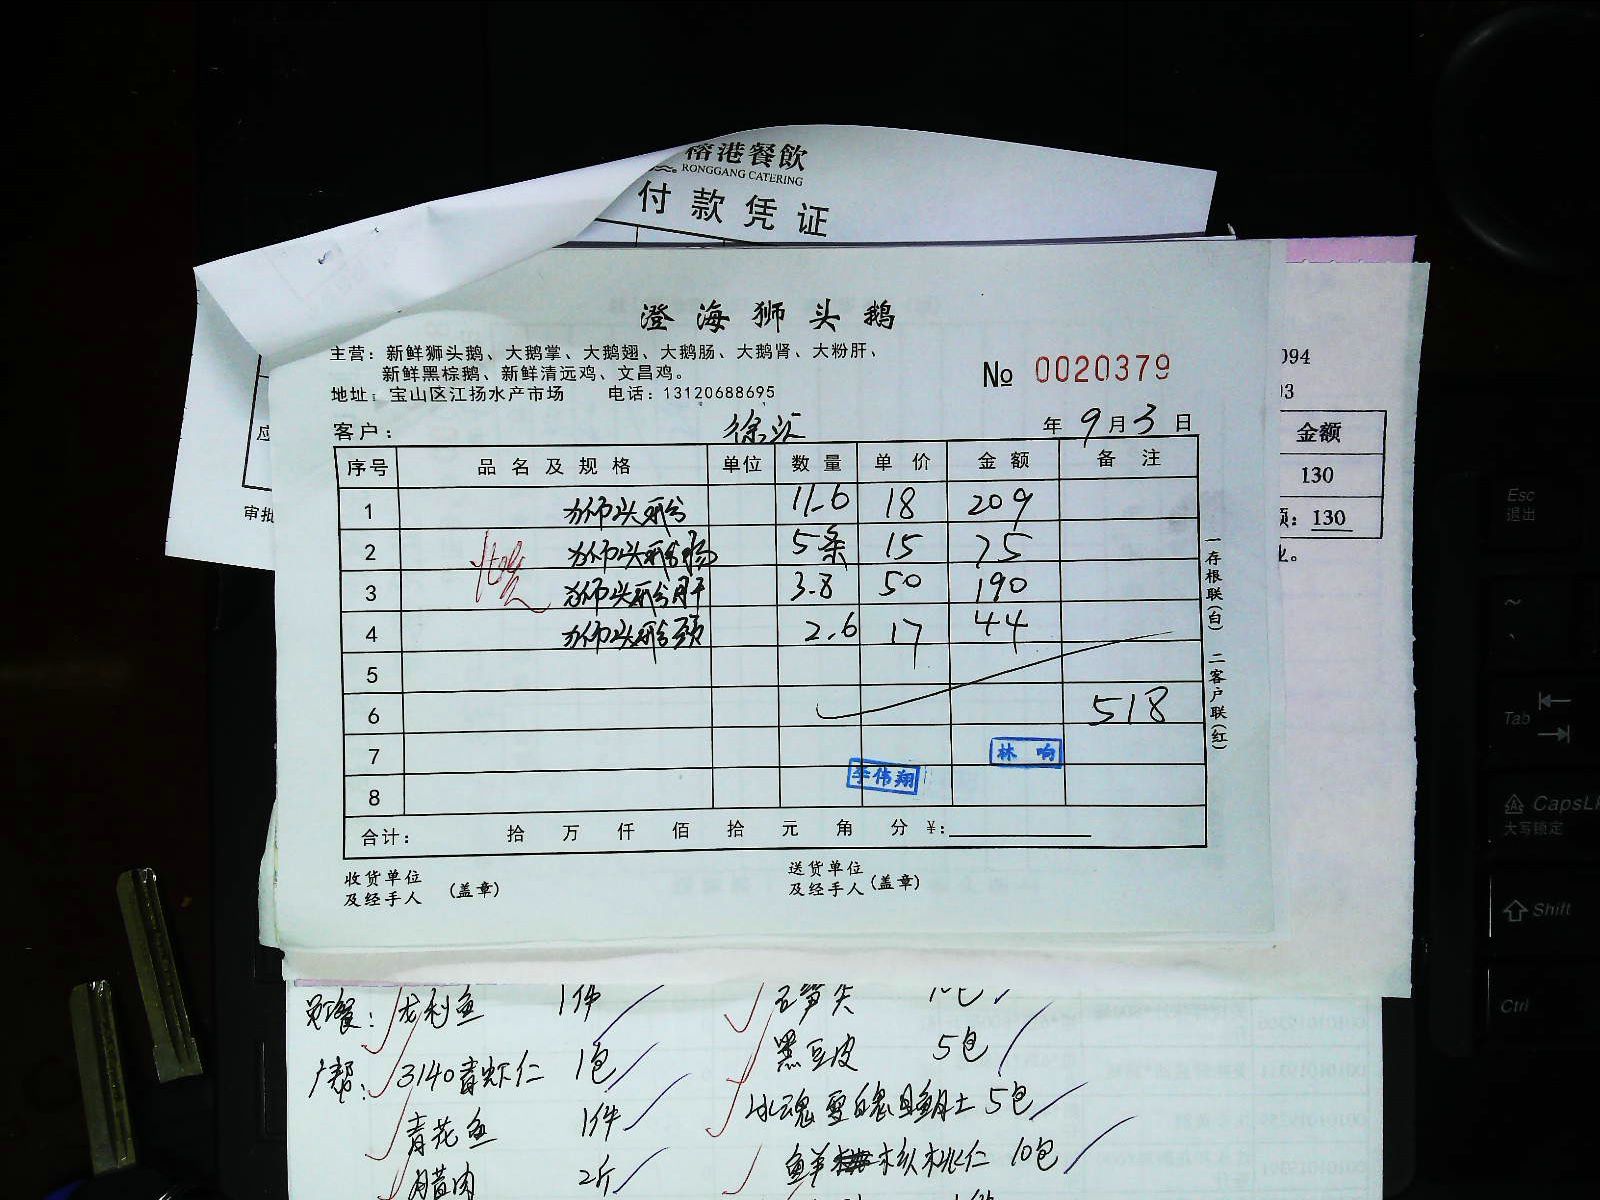 榕港餐飲
RONGGANG CATERING
付款凭证
应
审批
澄海狮头鹅
主营：新鲜狮头鹅、大鹅掌、大鹅翅、大鹅肠、大鹅肾、大粉肝、
新鲜黑棕鹅、新鲜清远鸡、文昌鸡。
№ 0020379
地址：宝山区江扬水产市场 电话：13120688695
客户： 徐汇 年 9 月 3 日
序号 品名及规格 单位 数量 单价 金额 备注
1 狮头鹅 11.6 18 209
2 狮头鹅肠 5条 15 75
3 狮头鹅肝 3.8 50 190
4 狮头鹅颈 2.6 17 44
5
6 518
7 林响
李伟翔
8
合计： 拾 万 仟 佰 拾 元 角 分 ¥：
收货单位
及经手人 （盖章）
送货单位
及经手人（盖章）
一存根联（白） 二客户联（红）
094
03
金额
130
额：130
员工餐： 龙利鱼 1件
广帮： 3140青虾仁 1包
青花鱼 1件
腊肉 2斤
黑豆皮 5包
5包
10包
Esc
退出
Tab
CapsL
大写锁定
Shift
Ctrl